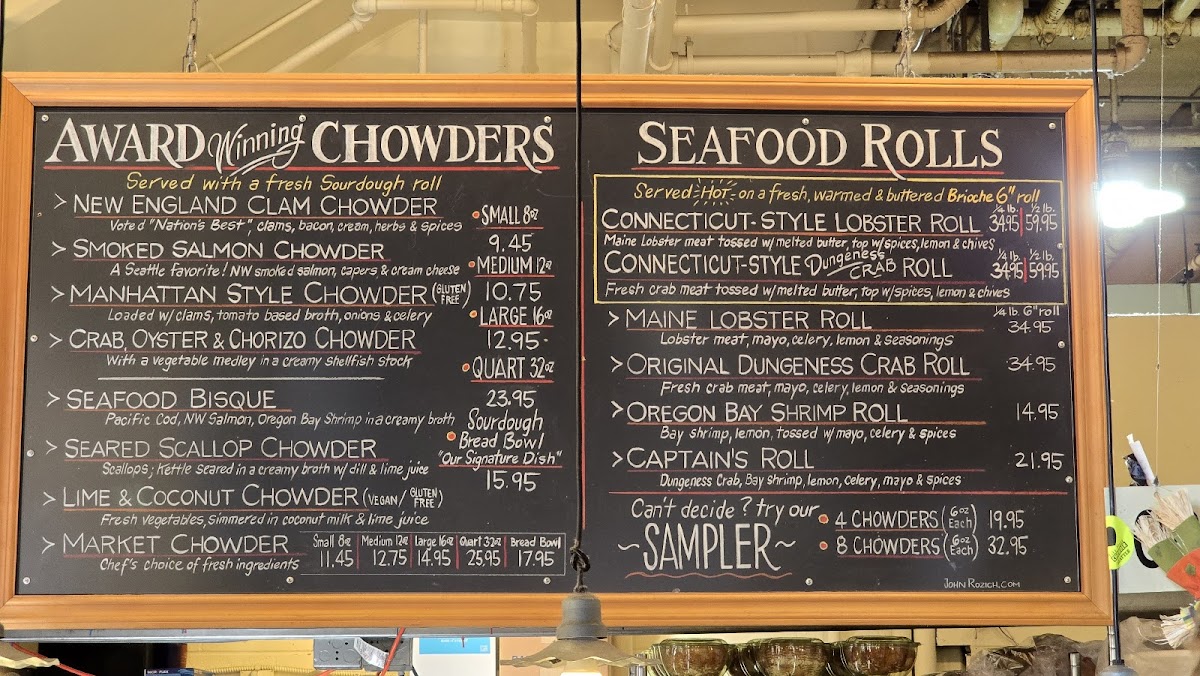 AWARD Winning CHOWDERS
Served with a fresh Sourdough roll
> NEW ENGLAND CLAM CHOWDER
Voted "Nation's Best", clams, bacon, cream, herbs & spices
> SMOKED SALMON CHOWDER
A Seattle favorite! NW smoked salmon, capers & cream cheese
> MANHATTAN STYLE CHOWDER (GLUTEN FREE)
Loaded w/ clams, tomato based broth, onions & celery
> CRAB, OYSTER & CHORIZO CHOWDER
With a vegetable medley in a creamy shellfish stock
> SEAFOOD BISQUE
Pacific Cod, NW Salmon, Oregon Bay Shrimp in a creamy broth
> SEARED SCALLOP CHOWDER
Scallops; Kettle seared in a creamy broth w/ dill & lime juice
> LIME & COCONUT CHOWDER (VEGAN/ GLUTEN FREE)
Fresh vegetables, simmered in coconut milk & lime juice
> MARKET CHOWDER
Chef's choice of fresh ingredients
Small 8oz Medium 12oz Large 16oz Quart 32oz Bread Bowl
11.45 12.75 14.95 25.95 17.95
SMALL 8oz
9.45
MEDIUM 12oz
10.75
LARGE 16oz
12.95
QUART 32oz
23.95
Sourdough
Bread Bowl
"Our Signature Dish"
15.95
SEAFOOD ROLLS
Served HOT on a fresh, warmed & buttered Brioche 6" roll
CONNECTICUT-STYLE LOBSTER ROLL 1/4 lb. 34.95 1/2 lb. 59.95
Maine Lobster meat tossed w/ melted butter, top w/spices, lemon & chives
CONNECTICUT-STYLE Dungeness CRAB ROLL 1/4 lb. 34.95 1/2 lb. 59.95
Fresh crab meat tossed w/ melted butter, top w/spices, lemon & chives
> MAINE LOBSTER ROLL 1/4 lb. 6" roll 34.95
Lobster meat, mayo, celery, lemon & seasonings
> ORIGINAL DUNGENESS CRAB ROLL 34.95
Fresh crab meat, mayo, celery, lemon & seasonings
> OREGON BAY SHRIMP ROLL 14.95
Bay shrimp, lemon, tossed w/ mayo, celery & spices
> CAPTAIN'S ROLL 21.95
Dungeness Crab, Bay shrimp, lemon, celery, mayo & spices
Can't decide? try our
~SAMPLER~
4 CHOWDERS (6oz Each) 19.95
8 CHOWDERS (6oz Each) 32.95
JOHN ROZICH.COM